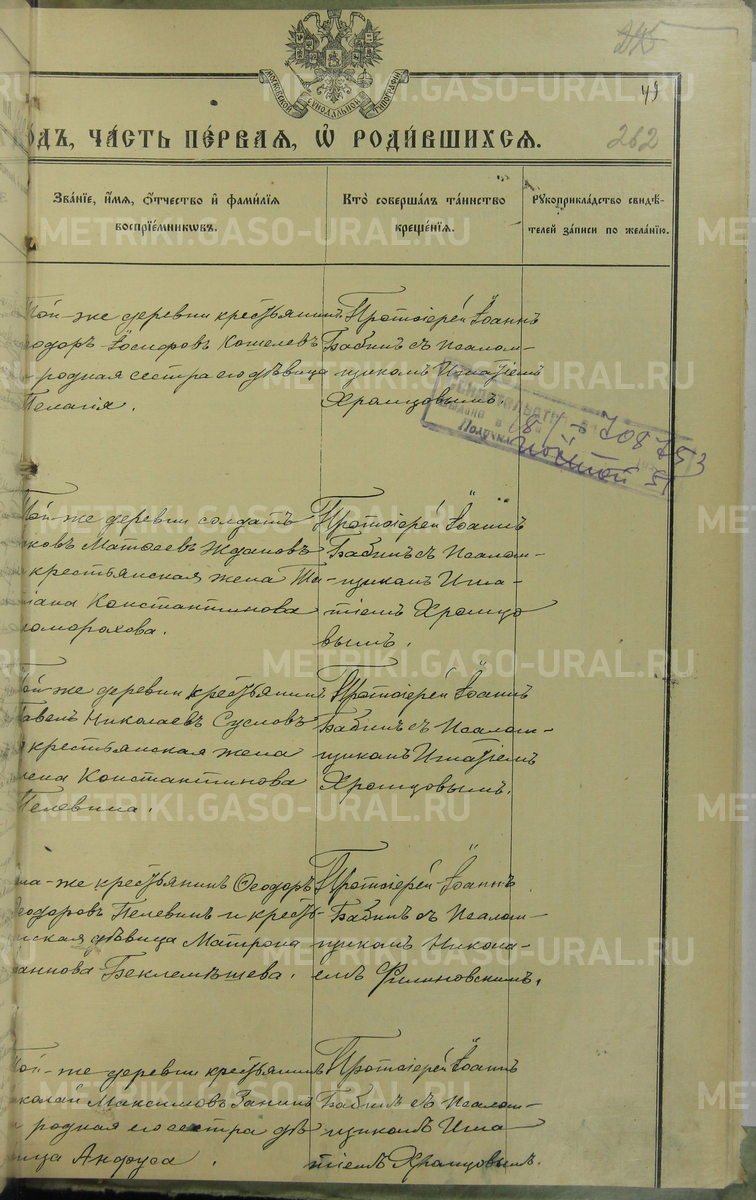 245
49
МОСКОВСКОЙ СѴНОДАЛЬНОЙ ТИПОГРАФІИ
ОДЪ, ЧАСТЬ ПЕРВАЯ, Ѡ РОДИВШИХСЯ.
262
Званіе, имя, отчество и фамилія воспріемниковъ.
Кто совершалъ таинство крещенія.
Рукоприкладство свидѣтелей записи по желанію.
Той-же деревни крестьянинъ
еодоръ Іосифовъ Кошелевъ
родная сестра его дѣвица
Пелагія.
Протоіерей Іоаннъ
Бабинъ съ псалом-
щикомъ Игнатіемъ
Храмцовымъ.
708753
почтой
Той-же деревни солдатъ
ковъ Матѳеевъ Ждановъ
крестьянская жена Та-
іана Константинова
оморохова.
Протоіерей Іоаннъ
Бабинъ съ псалом-
щикомъ Игна-
тіемъ Храмцо
вымъ.
Той-же деревни крестьянинъ
Павелъ Николаевъ Сусловъ
и крестьянская жена
лена Константинова
Пелевина.
Протоіерей Іоаннъ
Бабинъ съ псалом-
щикомъ Игнатіемъ
Храмцовымъ.
ла-же крестьянинъ Ѳеодоръ
еодоровъ Пелевинъ и кресть-
нская дѣвица Матрона
аннова Беклемѣшева.
Протоіерей Іоаннъ
Бабинъ съ псалом-
щикомъ Никола-
емъ Филиновскимъ.
Той-же деревни крестьянинъ
колай Максимовъ Занинъ
и родная его сестра дѣ-
вица Анфуса.
Протоіерей Іоаннъ
Бабинъ съ псалом-
щикомъ Игна-
тіемъ Храмцовымъ.
METRIKI.GASO-URAL.RU